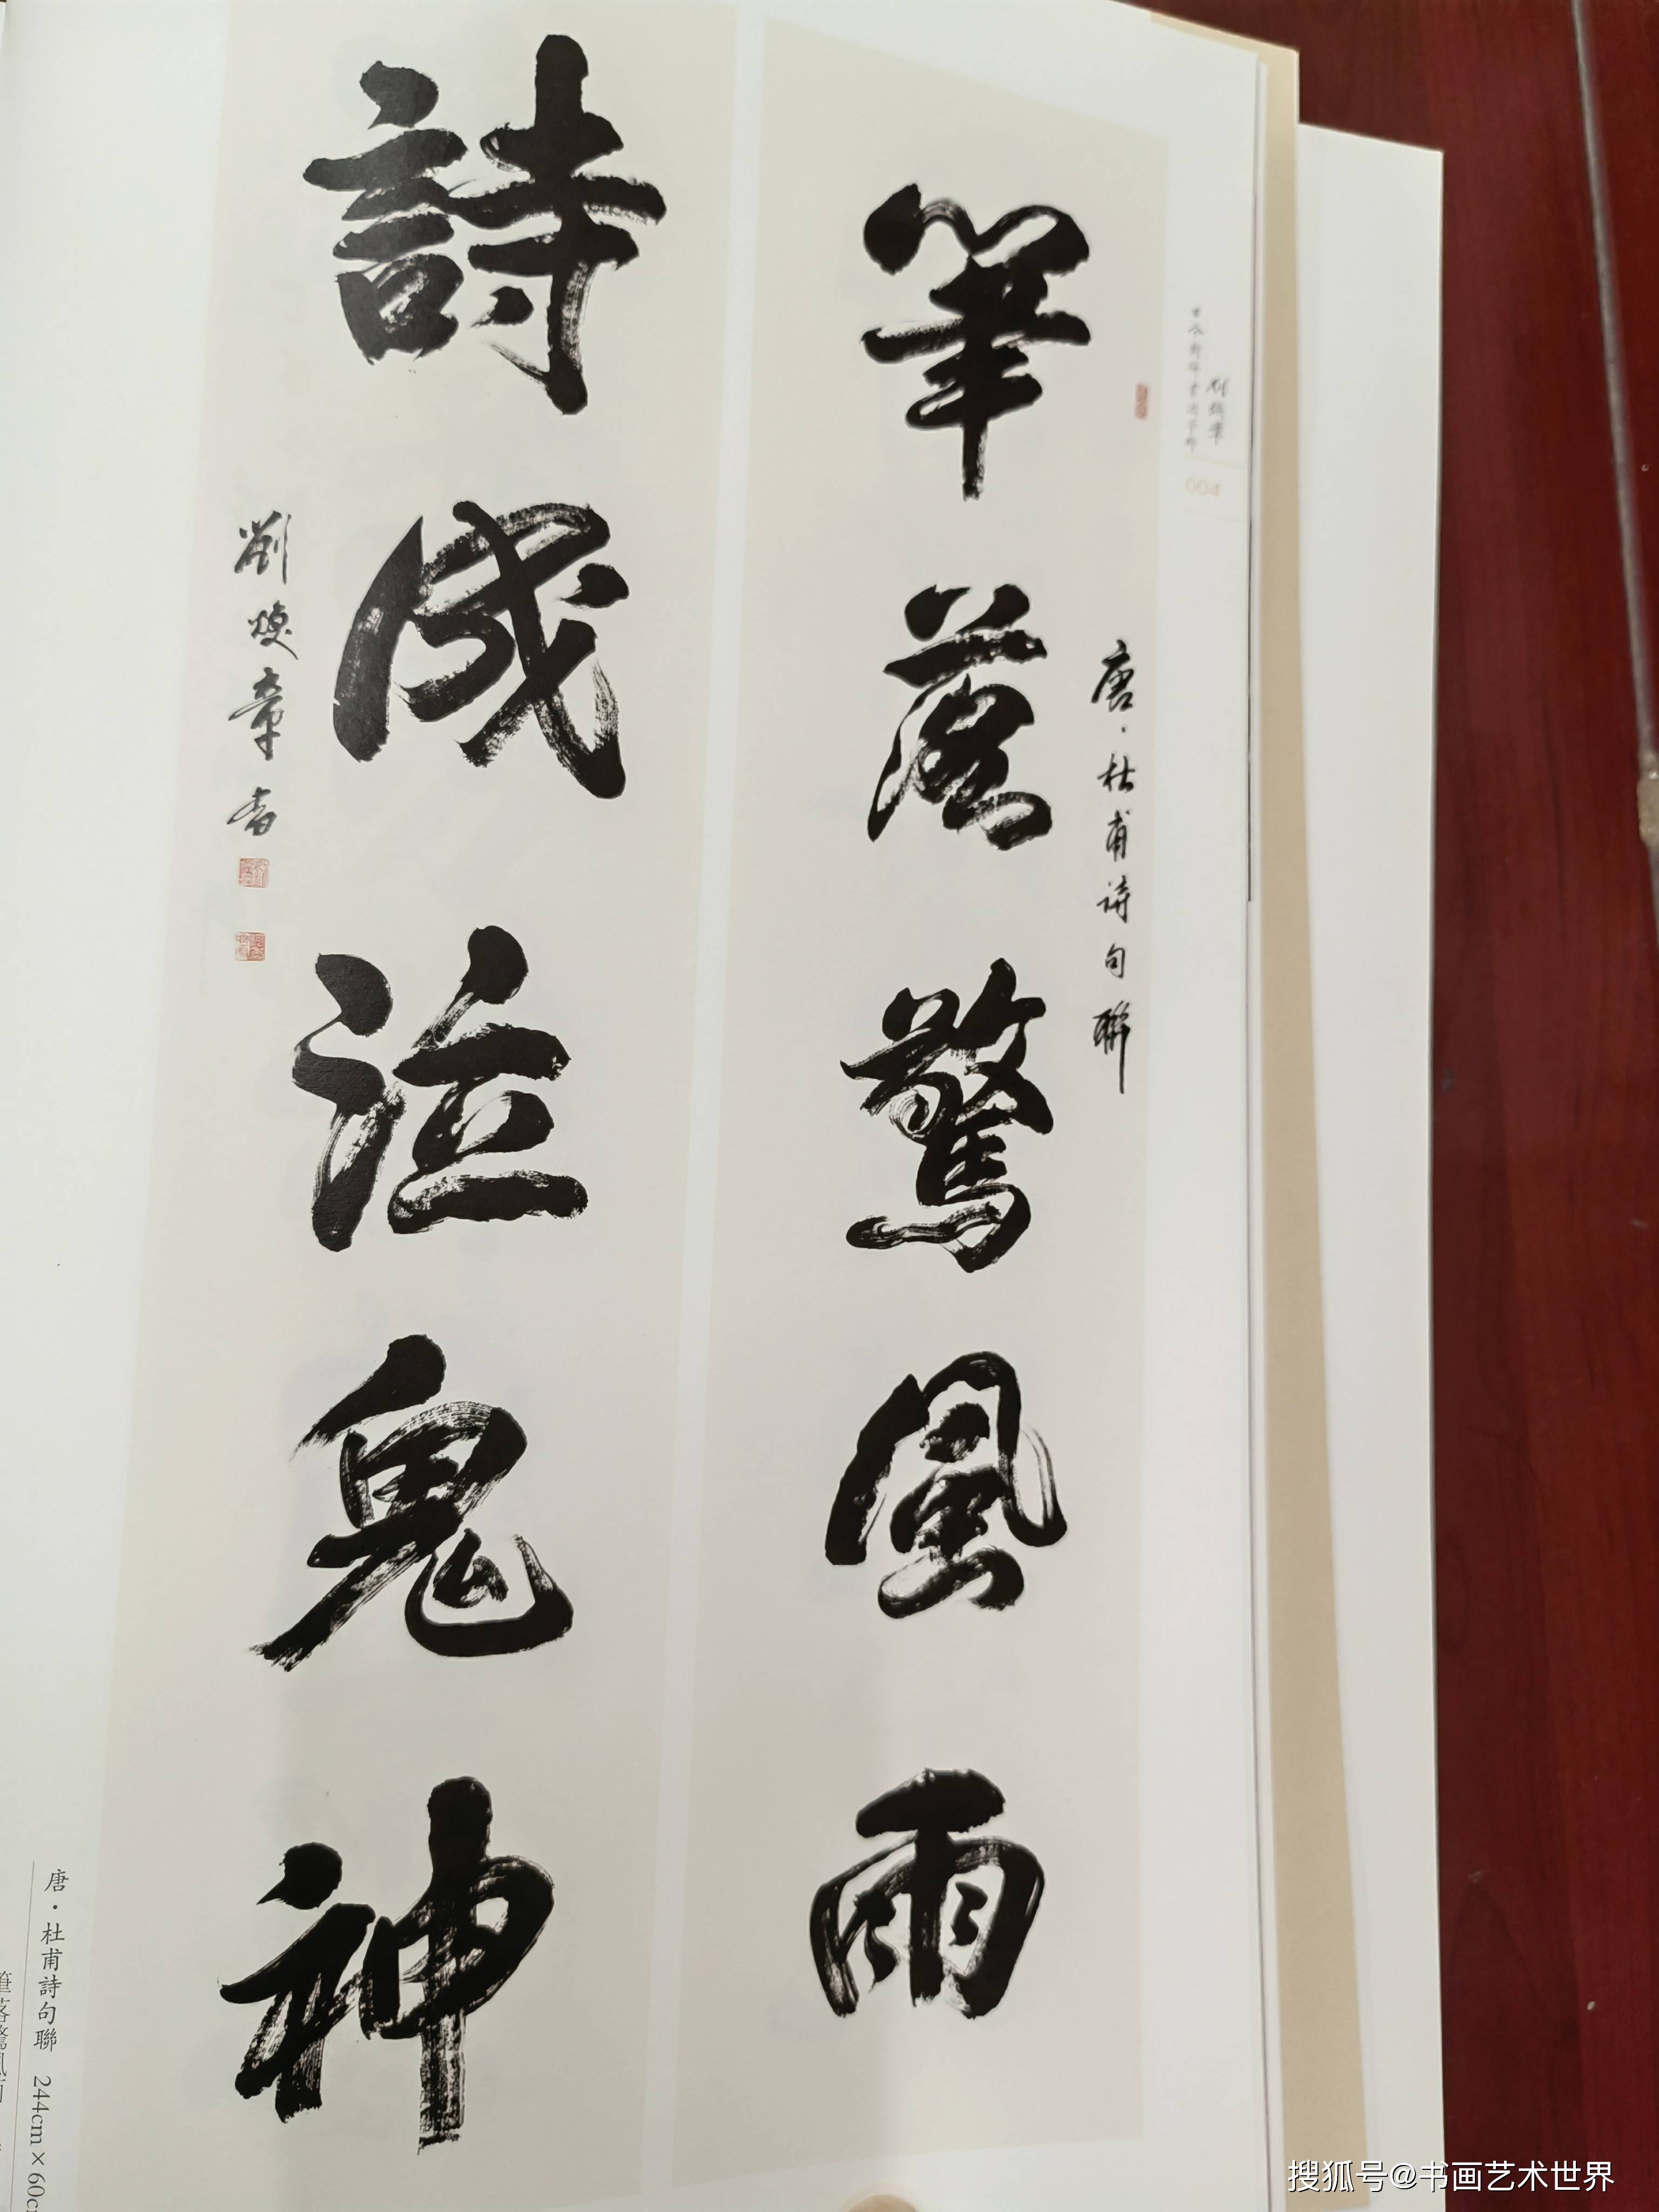 筆落驚風雨
唐·杜甫詩句聯
詩成泣鬼神
劉煥章書
劉煥章
004
唐·杜甫詩句聯 244cm×60c
筆落驚風雨
搜狐号@书画艺术世界